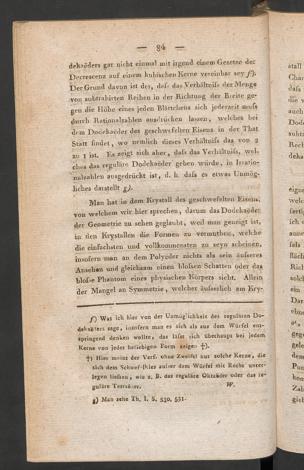 — 84 —
dekaëders gar nicht einmal mit irgend einem Gesetze der
Decrescenz auf einem kubischen Kerne vereinbar sey f).
Der Grund davon ist der, daſs das Verhältniſs der Menge
von subtrahirten Reihen in der Richtung der Breite ge-
gen die Höhe eines jeden Blättchens sich jederzeit muſs
durch Rationalzahlen ausdrücken lassen, welches bei
dem Dodekaëder des geschwefelten Eisens in der That
Statt findet, wo nemlich dieses Verhältniſs das von 2
zu 1 ist. Es zeigt sich aber, daſs das Verhältniſs, wel-
ches das reguläre Dodekaëder geben würde, in Irratio-
nalzahlen ausgedrückt ist, d. h. daſs es etwas Unmög-
liches darstellt g).
Man hat in dem Krystall des geschwefelten Eisens,
von welchem wir hier sprechen, darum das Dodekaëder
der Geometrie zu sehen geglaubt, weil man geneigt ist,
in den Krystallen die Formen zu vermuthen, welche
die einfachsten und vollkommensten zu seyn scheinen,
insofern man an dem Polyëder nichts als sein äuſseres
Ansehen und gleichsam einen bloſsen Schatten oder das
bloſse Phantom eines physischen Körpers sieht. Allein
der Mangel an Symmetrie, welcher äuſserlich am Kry-
f) Was ich hier von der Unmöglichkeit des regulären Do-
dekaëders sage, insofern man es sich als aus dem Würfel ent-
springend denken wollte, das läſst sich überhaupt bei jedem
Kerne von jeder beliebigen Form zeigen †).
†) Hier meint der Verf. ohne Zweifel nur solche Kerne, die
sich dem Schwefelkies auſser dem Würfel mit Recht unter-
legen lieſsen, wie z. B. das reguläre Oktaëder oder das re-
guläre Tetraëder. W.
g) Man sehe Th. I. S. 530. 531.